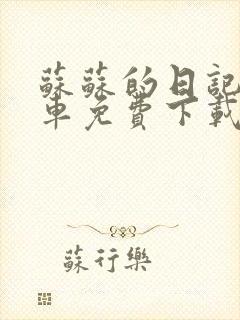 蘇蘇的日記
車免費下載
蘇行樂